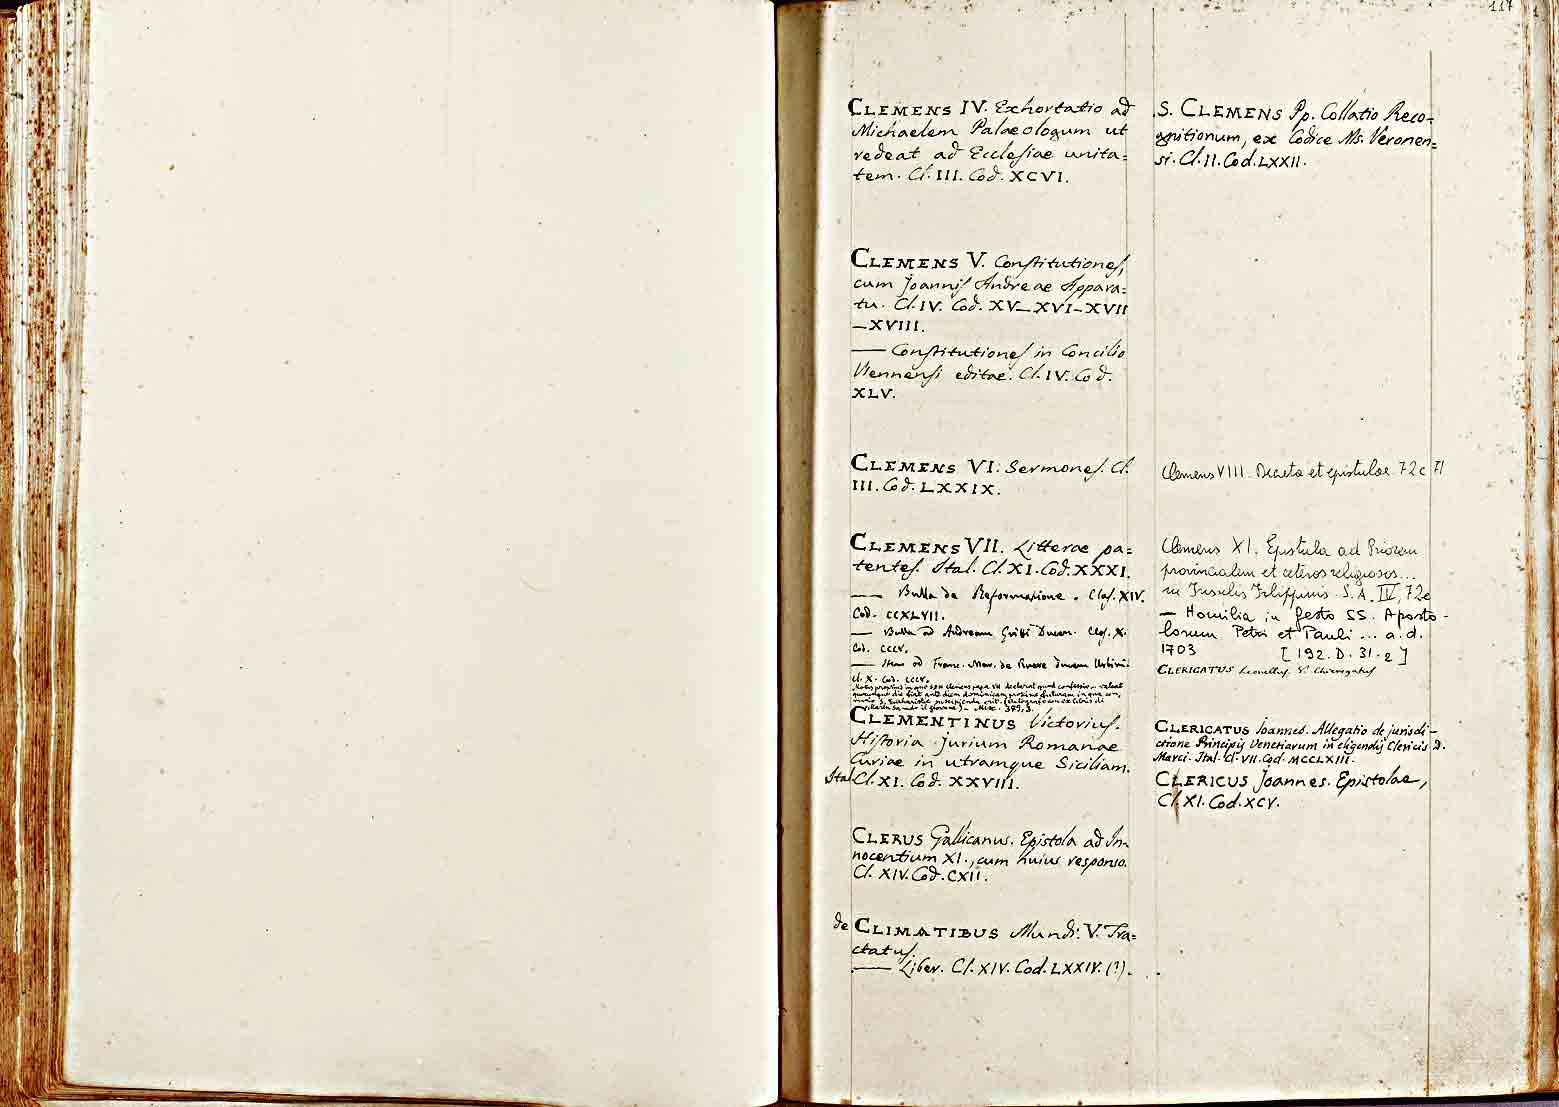 117
CLEMENS IV. Exhortatio ad
Michaelem Palaeologum ut
redeat ad Ecclesiae unita=
tem. Cl. III. Cod. XCVI.
CLEMENS V. Constitutiones,
cum Joannis Andreae Appara=
tu. Cl. IV. Cod. XV_XVI_XVII
_XVIII.
— Constitutiones in Concilio
Viennensi editae. Cl. IV. Cod.
XLV.
CLEMENS VI. Sermones. Cl.
III. Cod. LXXIX.
CLEMENS VII. Litterae pa=
tentes. Ital. Cl. XI. Cod. XXXI.
— Bulla de Reformatione. Clas. XIV.
Cod. CCXLVII.
— Bulla ad Andream Gritti Ducem. Clas. X.
Cod. CCCV.
— ad Franc. Mar. de Ruere Ducem Urbini.
Cl. X. Cod. CCCV.
Motus proprius in quo clemens papa VII declarat quod
CLEMENTINUS Victorius.
Historia Jurium Romanae
Curiae in utramque Siciliam.
Ital. Cl. XI. Cod. XXVIII.
CLERUS Gallicanus. Epistola ad In-
nocentium XI., cum huius responso.
Cl. XIV. Cod. CXII.
de CLIMATIBUS Mundi V. Tra=
ctatus.
— Liber. Cl. XIV. Cod. LXXIV. (?).
S. CLEMENS Pp. Collatio Reco-
gnitionum, ex Codice Ms. Veronen=
si. Cl. II. Cod. LXXII.
Clemens VIII. Decreta et epistulae 72 c 71
Clemens XI. Epistula ad Priorem
provincialem et ceteros religiosos...
in Insulis Filippinis. S.A. IV, 72e
— Homilia in festo SS. Aposto-
lorum Petri et Pauli ... a.d.
1703 [192.D.31.2]
CLERICATUS Leonellus. V. Chieregatus
CLERICATUS Joannes. Allegatio de jurisdi-
ctione Principis Venetiarum in eligendis Clericis D.
Marci. Ital. Cl. VII. Cod. MCCLXIII.
CLERICUS Joannes. Epistolae,
Cl. XI. Cod. XCV.